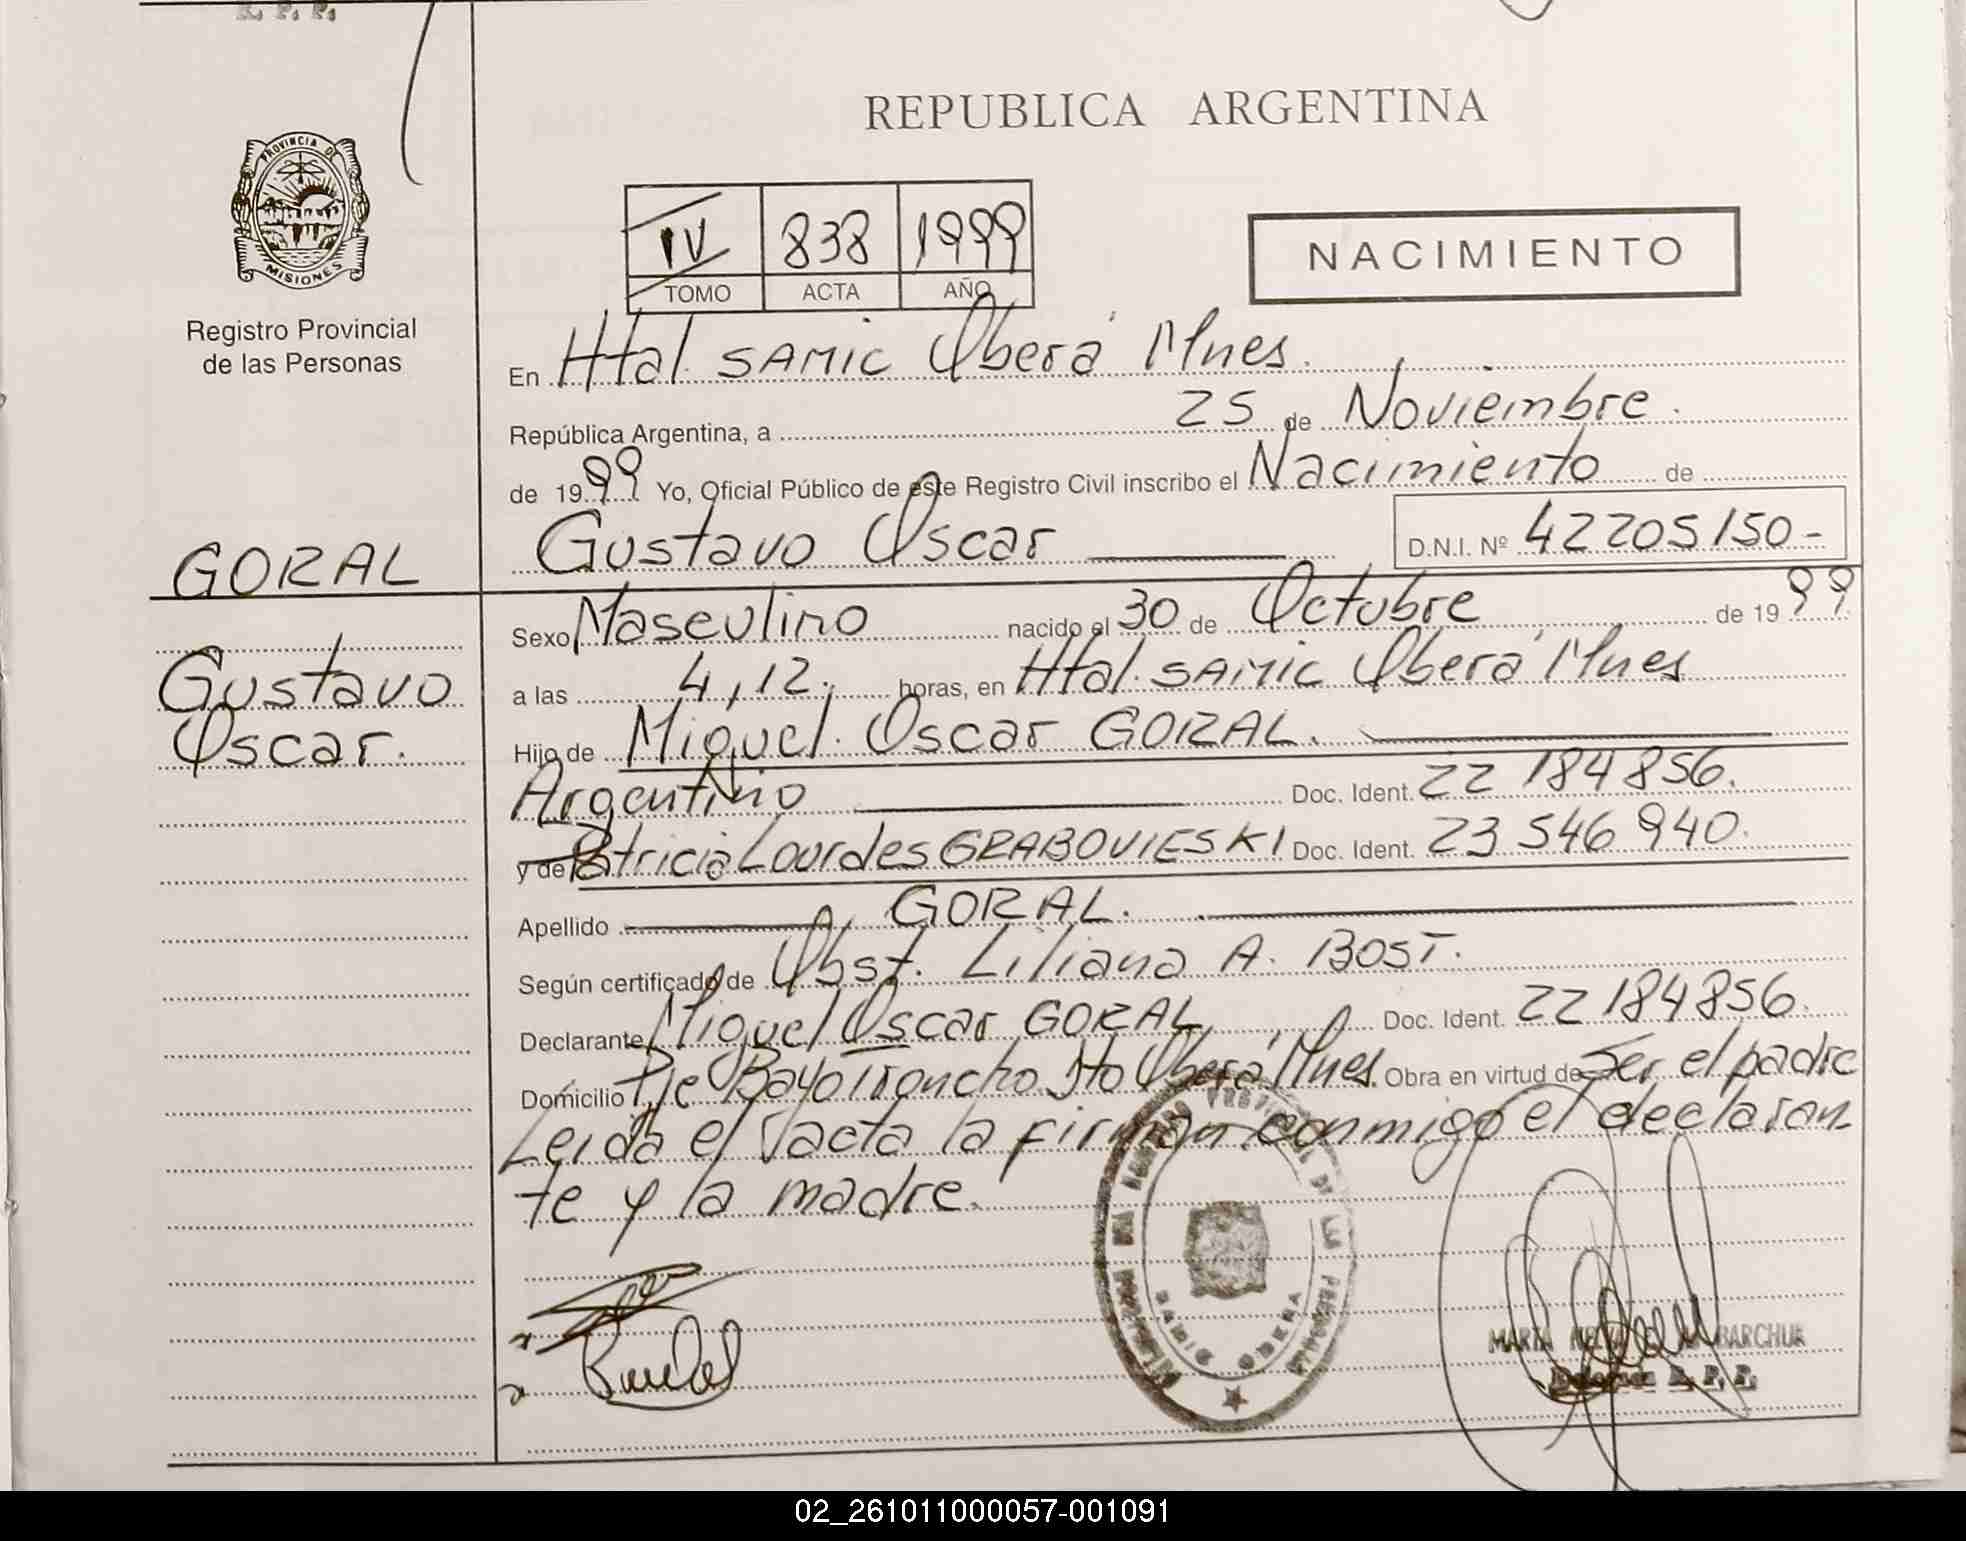 R. P. P.
REPUBLICA ARGENTINA
PROVINCIA DE
MISIONES
Registro Provincial
de las Personas
IV 838 1999
TOMO ACTA AÑO
NACIMIENTO
En Htal SAMIC Oberá Mnes.
República Argentina, a 25 de Noviembre.
de 1999 Yo, Oficial Público de este Registro Civil inscribo el Nacimiento de
Gustavo Oscar D.N.I. Nº 42205150-
GORAL
Gustavo
Oscar.
Sexo Masculino nacido el 30 de Octubre de 1999
a las 4,12. horas, en Htal. SAMIC Oberá Mnes
Hijo de Miguel Oscar GORAL.
Argentino Doc. Ident. 22 184 856.
y de Patricia Lourdes GRABOVIESKI Doc. Ident. 23 546 940.
Apellido GORAL.
Según certificado de Obst. Liliana A. BOST.
Declarante Miguel Oscar GORAL Doc. Ident. 22 184 856.
Domicilio Pje Bayo Oberá Mnes. Obra en virtud de Ser el padre
Leida el acta la firman conmigo el declaran
te y la madre.
SAMIC OBERA
MARTA BARCHUK
R. P. P.
02_261011000057-001091